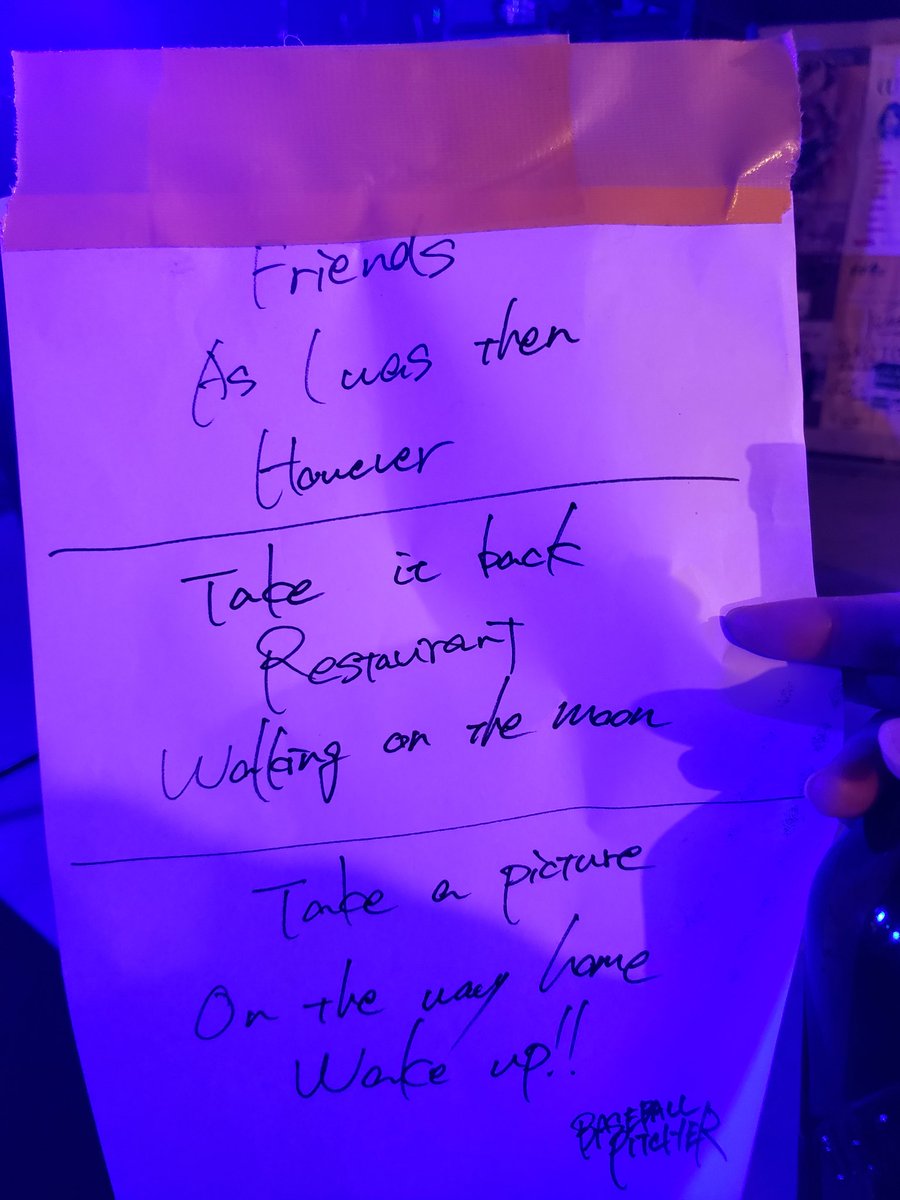 Friends
As I was then
However
Take it back
Restaurant
Walking on the moon
Take a picture
On the way home
Wake up!!
BASEBALL
PITCHER